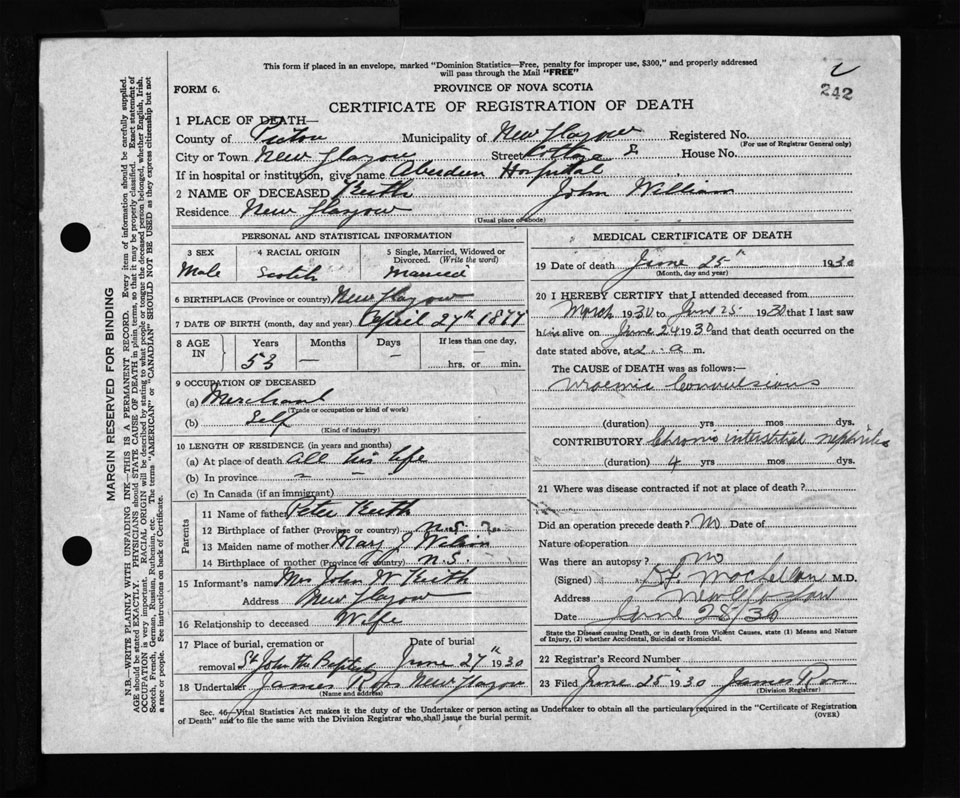 This form if placed in an envelope, marked "Dominion Statistics—Free, penalty for improper use, $300," and properly addressed
will pass through the Mail "FREE"
242
FORM 6.
PROVINCE OF NOVA SCOTIA
CERTIFICATE OF REGISTRATION OF DEATH
1 PLACE OF DEATH—
County of Pictou Municipality of New Glasgow Registered No.
(For use of Registrar General only)
City or Town New Glasgow Street House No.
If in hospital or institution, give name Aberdeen Hospital
2 NAME OF DECEASED Keith John William
Residence New Glasgow
(Usual place of abode)
PERSONAL AND STATISTICAL INFORMATION
3 SEX 4 RACIAL ORIGIN 5 Single, Married, Widowed or Divorced. (Write the word)
Male Scotch Married
6 BIRTHPLACE (Province or country) New Glasgow
7 DATE OF BIRTH (month, day and year) April 27th 1877
8 AGE IN Years Months Days If less than one day,
53 — — hrs. or min.
9 OCCUPATION OF DECEASED
(a) Merchant
(Trade or occupation or kind of work)
(b) Self
(Kind of industry)
10 LENGTH OF RESIDENCE (in years and months)
(a) At place of death all his life
(b) In province — —
(c) In Canada (if an immigrant)
Parents
11 Name of father Peter Keith
12 Birthplace of father (Province or country) N.S.
13 Maiden name of mother Mary J Wilson
14 Birthplace of mother (Province or country) N.S.
15 Informant's name Mrs John W Keith
Address New Glasgow
16 Relationship to deceased Wife
17 Place of burial, cremation or removal St John the Baptist Date of burial June 27th 1930
18 Undertaker James Ross New Glasgow
(Name and address)
MEDICAL CERTIFICATE OF DEATH
19 Date of death June 25th 1930
(Month, day and year)
20 I HEREBY CERTIFY that I attended deceased from
March 1930 to June 25 1930 that I last saw
him alive on June 24 1930 and that death occurred on
date stated above, at 2 a m.
The CAUSE OF DEATH was as follows:—
Uraemic Convulsions
(duration) yrs mos dys.
CONTRIBUTORY Chronic interstitial nephritis
(duration) 4 yrs mos dys.
21 Where was disease contracted if not at place of death?
Did an operation precede death? No Date of
Nature of operation
Was there an autopsy? no
(Signed) MacLellan M.D.
Address New Glasgow
Date June 28/30
State the Disease causing Death, or in death from Violent Causes, state (1) Means and Nature
of Injury, (2) whether Accidental, Suicidal or Homicidal.
22 Registrar's Record Number
23 Filed June 25 1930 James Ross
(Division Registrar)
Sec. 46—Vital Statistics Act makes it the duty of the Undertaker or person acting as Undertaker to obtain all the particulars required in the "Certificate of Registration
of Death" and to file the same with the Division Registrar who shall issue the burial permit.
(OVER)
MARGIN RESERVED FOR BINDING
N.B.—WRITE PLAINLY WITH UNFADING INK—THIS IS A PERMANENT RECORD. Every item of information should be carefully supplied.
AGE should be stated EXACTLY. PHYSICIANS should STATE CAUSE OF DEATH in plain terms, so that it may be properly classified. Exact statement of
OCCUPATION is very important. RACIAL ORIGIN will be described by stating to what people or tongue the deceased person belonged, whether English, Irish,
Scotch, French, German, Russian, Ruthenian, etc. The terms "AMERICAN" or "CANADIAN" SHOULD NOT BE USED as they express citizenship but not
a race or people. See instructions on back of Certificate.